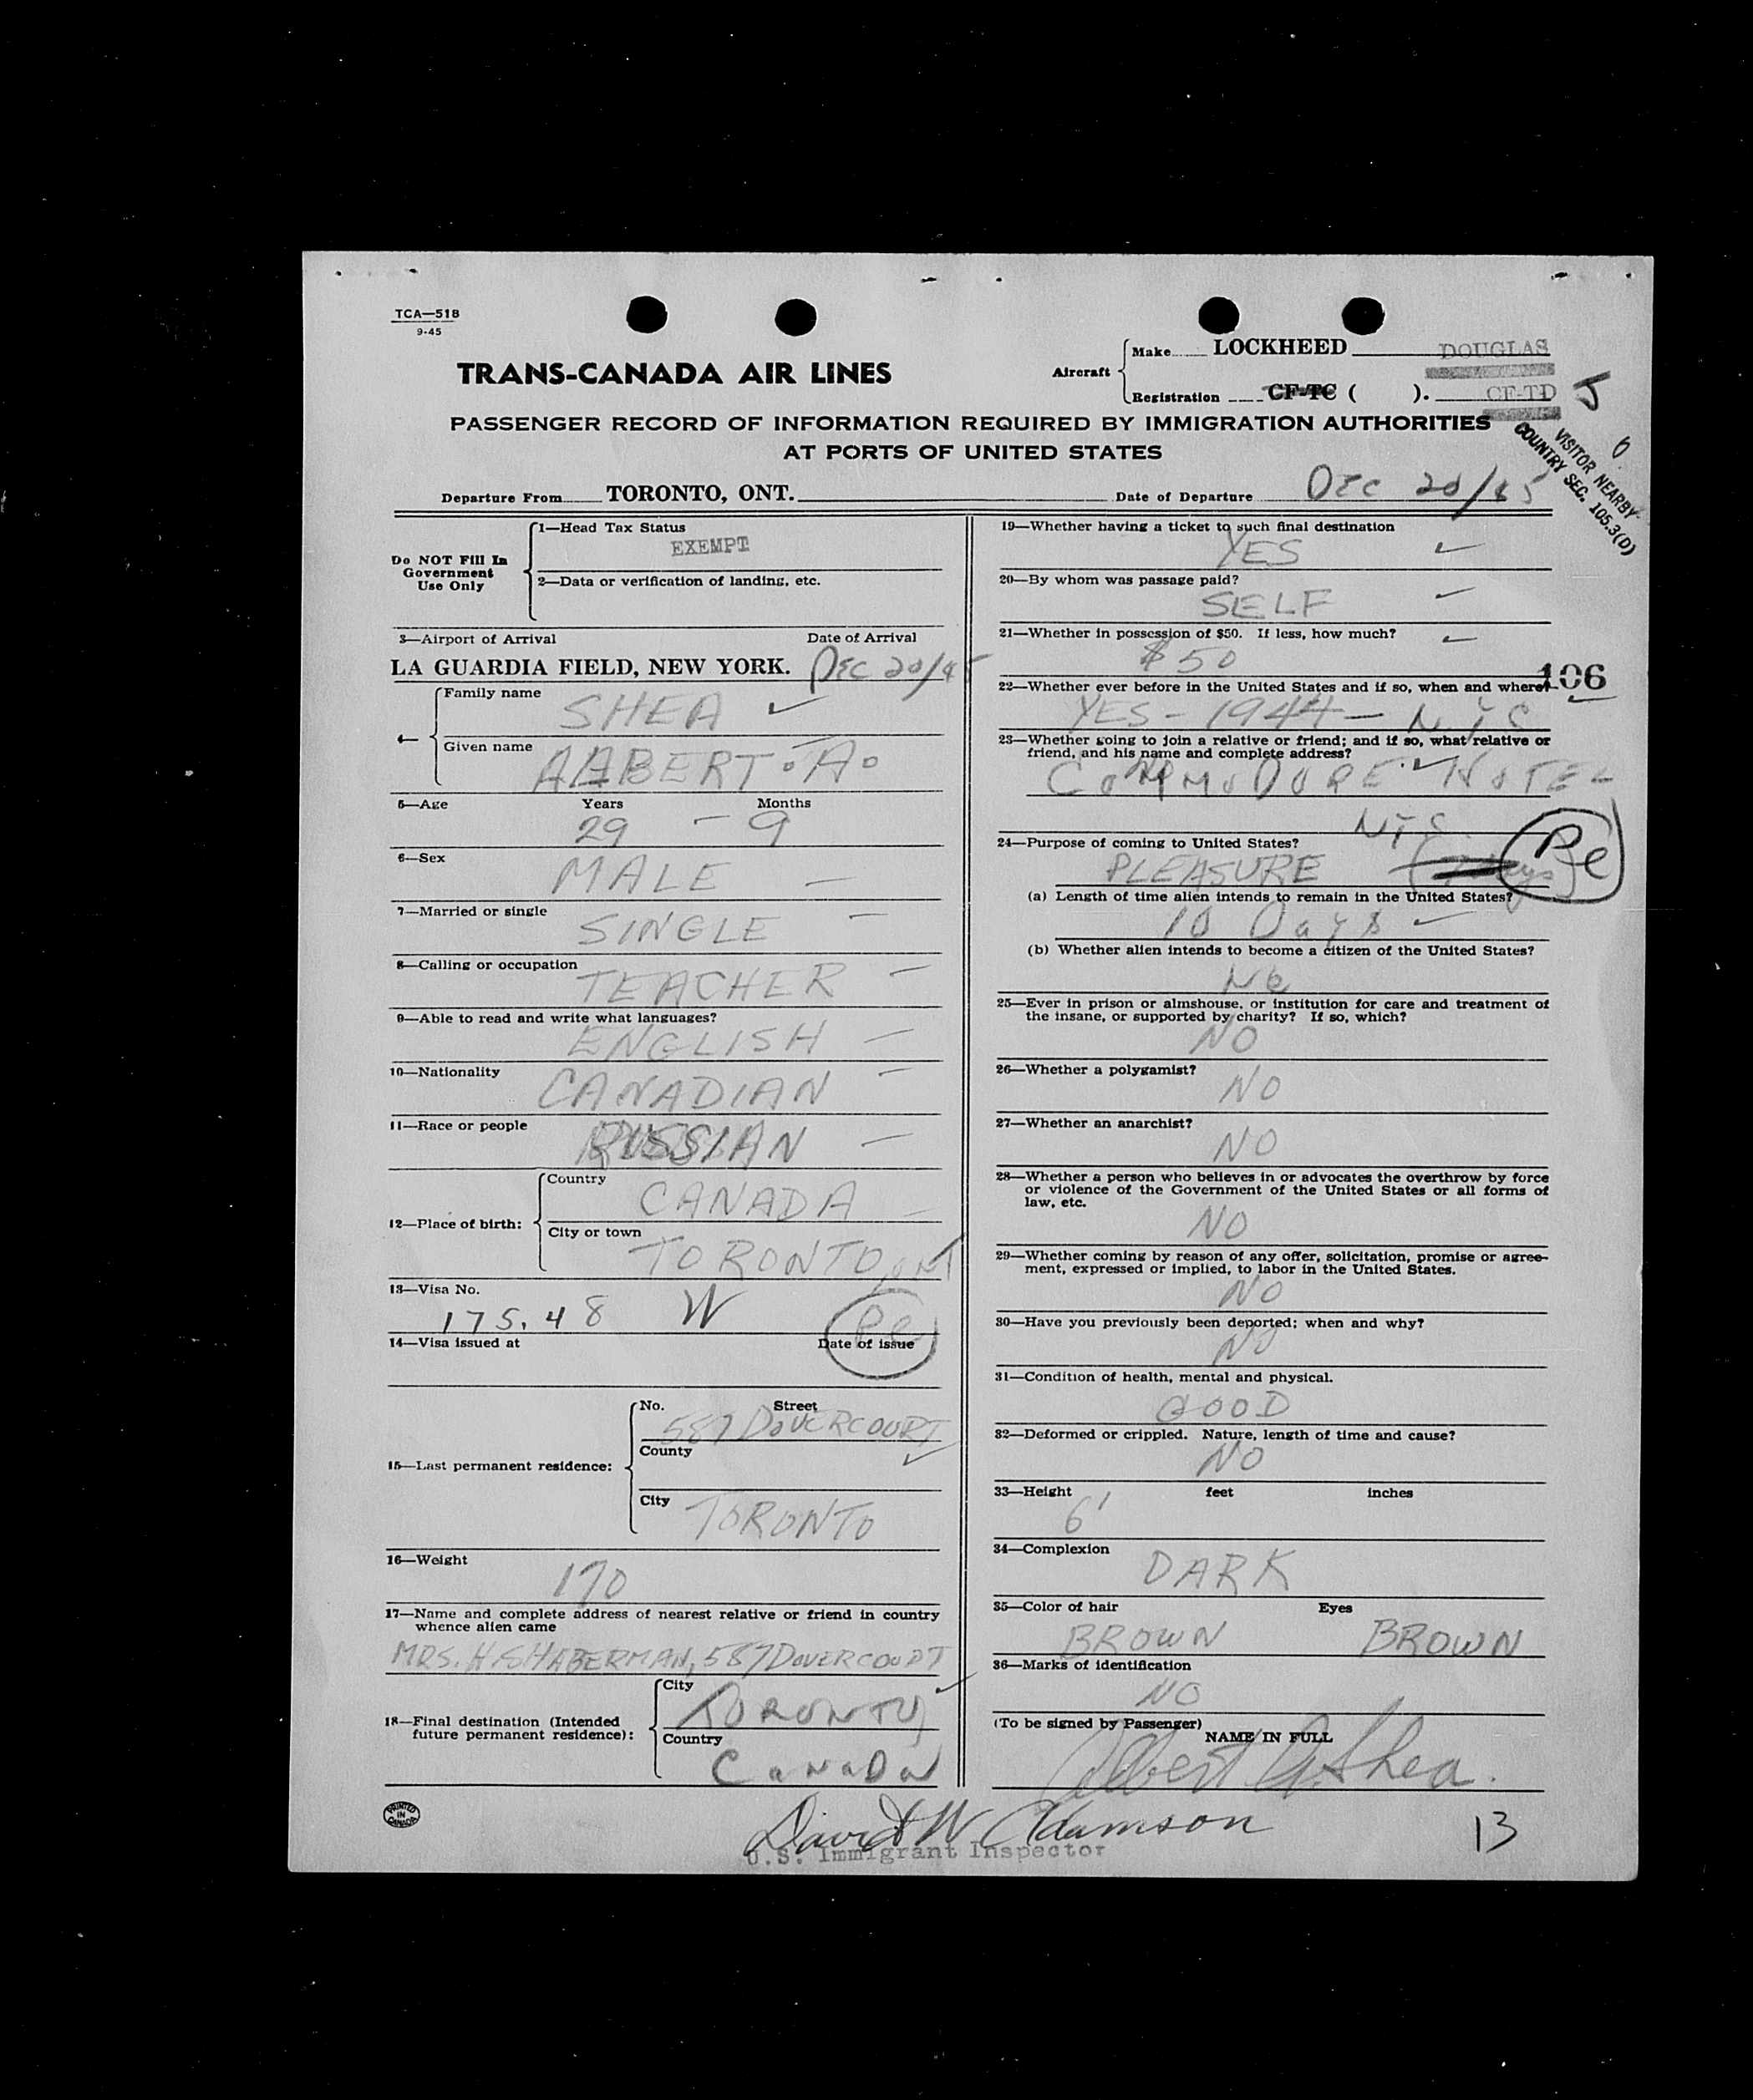 TCA—518
9-45
TRANS-CANADA AIR LINES
Aircraft
Make LOCKHEED DOUGLAS
Registration CF-TC ( ). CF-TD J
PASSENGER RECORD OF INFORMATION REQUIRED BY IMMIGRATION AUTHORITIES
AT PORTS OF UNITED STATES
VISITOR NEARBY
COUNTRY SEC. 105.3(D)
Departure From TORONTO, ONT. Date of Departure DEC 20/45
Do NOT Fill In
Government
Use Only
1—Head Tax Status
EXEMPT
2—Data or verification of landing, etc.
3—Airport of Arrival Date of Arrival
LA GUARDIA FIELD, NEW YORK. DEC 20/45
4—
Family name SHEA
Given name ALBERT. A.
5—Age Years Months
29 - 9
6—Sex
MALE
7—Married or single
SINGLE
8—Calling or occupation
TEACHER
9—Able to read and write what languages?
ENGLISH
10—Nationality
CANADIAN
11—Race or people
RUSSIAN
12—Place of birth:
Country
CANADA
City or town
TORONTO, ONT
13—Visa No.
175.48 W
Pe
14—Visa issued at Date of issue
15—Last permanent residence:
No. Street
587 DOVERCOURT
County
City TORONTO
16—Weight
170
17—Name and complete address of nearest relative or friend in country
whence alien came
MRS. H. SHABERMAN, 587 DOVERCOURT
18—Final destination (Intended
future permanent residence):
City
TORONTO
Country
CANADA
19—Whether having a ticket to such final destination
YES
20—By whom was passage paid?
SELF
21—Whether in possession of $50. If less, how much?
$50
106
22—Whether ever before in the United States and if so, when and where?
YES - 1944 - NYC
23—Whether going to join a relative or friend; and if so, what relative or
friend, and his name and complete address?
COMMODORE HOTEL
NYC
24—Purpose of coming to United States?
PLEASURE
Pe
(a) Length of time alien intends to remain in the United States?
10 Days
(b) Whether alien intends to become a citizen of the United States?
No
25—Ever in prison or almshouse, or institution for care and treatment of
the insane, or supported by charity? If so, which?
NO
26—Whether a polygamist?
NO
27—Whether an anarchist?
NO
28—Whether a person who believes in or advocates the overthrow by force
or violence of the Government of the United States or all forms of
law, etc.
NO
29—Whether coming by reason of any offer, solicitation, promise or agree-
ment, expressed or implied, to labor in the United States.
NO
30—Have you previously been deported; when and why?
NO
31—Condition of health, mental and physical.
GOOD
32—Deformed or crippled. Nature, length of time and cause?
NO
33—Height feet inches
6'
34—Complexion
DARK
35—Color of hair Eyes
BROWN BROWN
36—Marks of identification
NO
(To be signed by Passenger)
NAME IN FULL
Albert A. Shea.
PRINTED IN CANADA
David W Adamson
U.S. Immigrant Inspector
13